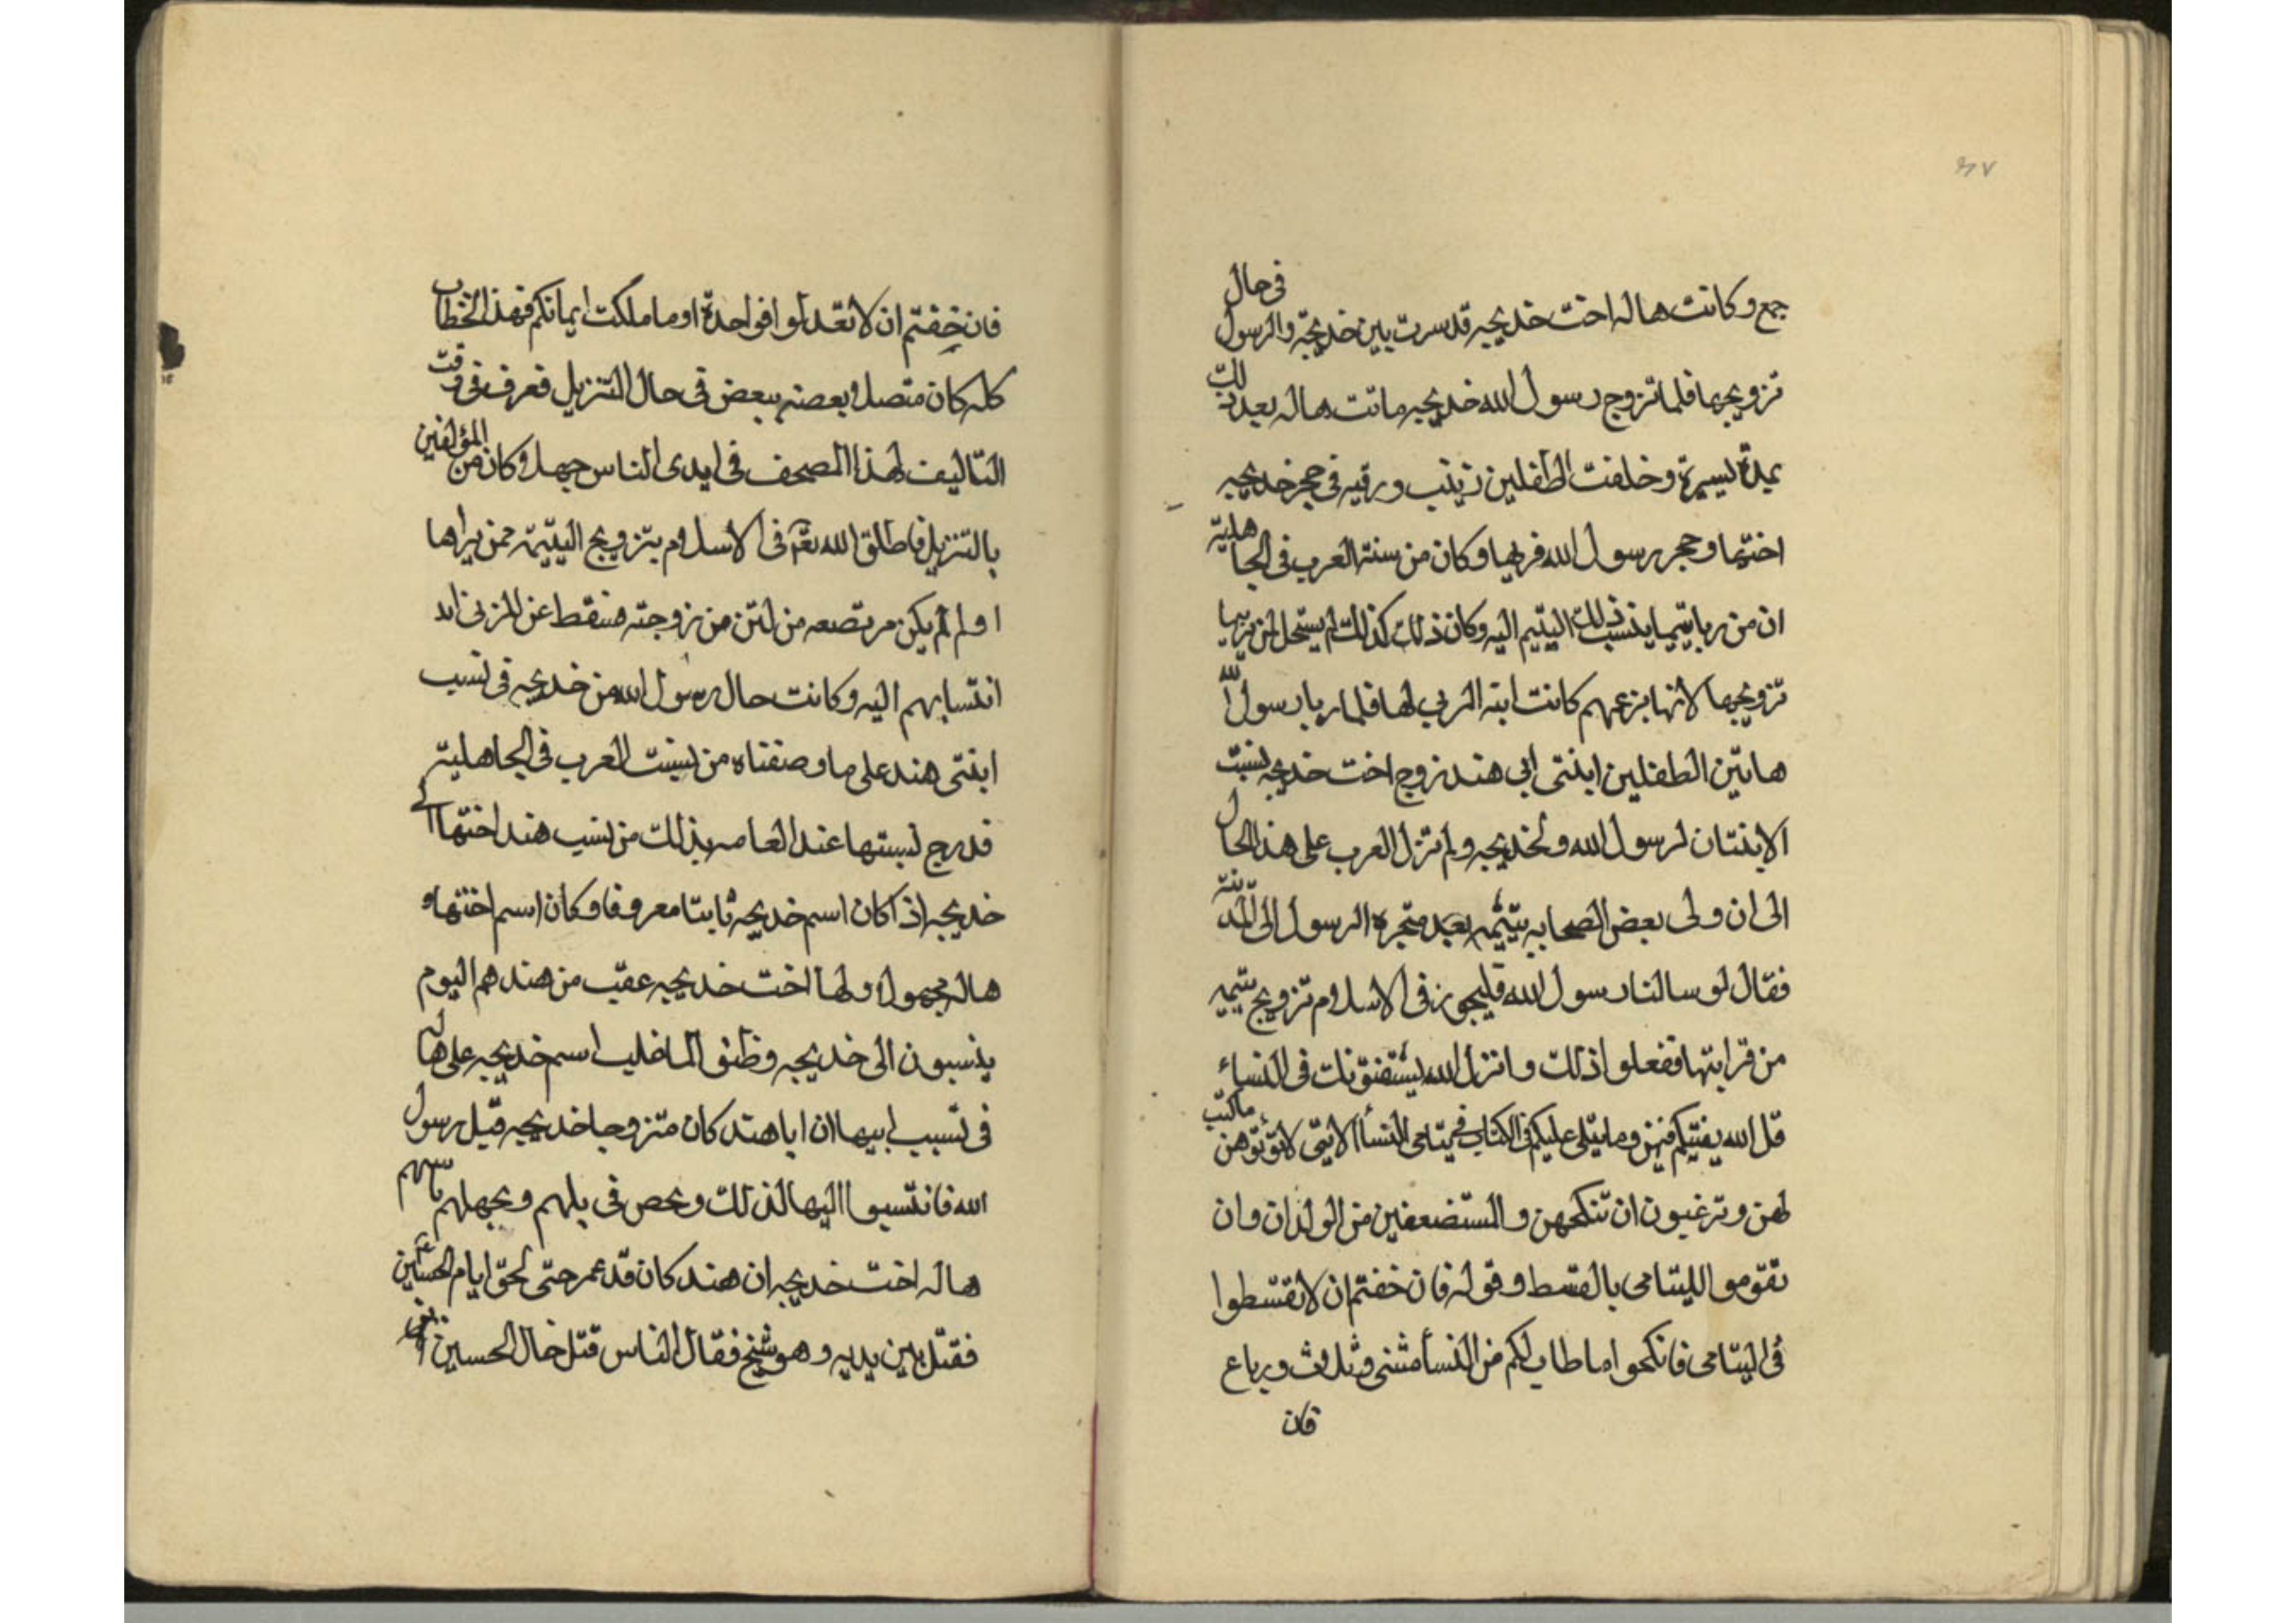 ٦٧
جمع وكانت هاله اخت خديجه قد سرت بين خديجة والرسول فى حال
تزويجها فلما تزوج رسول الله خديجه ماتت هاله بعد ذلك
بمدة يسيرة وخلفت الطفلين زينب ورقيه فى حجر خديجه
اختها وحجر رسول الله فربها وكان من سنة العرب فى الجاهلية
ان من ربا يتيما ينسب ذلك اليتيم اليه وكان ذلك كذلك لم يستحل لمن يربيها
تزويجها لانها بزعمهم كانت ابنه المربى لها فلما ربا رسول الله
هاتين الطفلين ابنتى ابى هند زوج اخت خديجه نسبت
الابنتان لرسول الله ولخديجه ولم تزل العرب على هذا الحال
الى ان ولى بعض الصحابه يتيمه بعد هجرة الرسول الى المدينة
فقال لو سالنا رسول الله فليجوز فى الاسلام تزويج يتيمه
من قرابتها ففعلوا ذلك وانزل الله يستفتونك فى النساء
قل الله يفتيكم فيهن وما يتلى عليكم فى الكتاب فى يتامى النسأ الاتى لا تؤتوهن ما كتب
لهن وترغبون ان تنكحهن والمستضعفين من الولدان وان
تقوموا لليتامى بالقسط وقوله فان خفتم ان لا تقسطوا
فى اليتامى فانكحوا ما طاب لكم من النسأ مثنى وثلاث ورباع
فان
فان خفتم ان لا تعدلوا فواحدة او ما ملكت ايمانكم فهذا الخطاب
كله كان متصلا بعضه ببعض فى حال التنزيل فعرف فى وقت
التاليف لهذا المصحف فى ايدى الناس جهلا وكان من المؤلفين
بالتنزيل فاطلق الله تع فى الاسلام بتزويج اليتيمة ممن يراها
او لم يكن مرتضعه من لبن من زوجته فسقط عن
انتسابهم اليه وكانت حال رسول الله من خديجه فى نسب
ابنتى هند على ما وصفناه من سنت العرب فى الجاهلية
فدرج نسبتها عند العامه بذلك من نسب هند اختها الى
خديجه اذ كان اسم خديجه ثابتا معروفا وكان اسم اختها
هاله مجهولا ولها اخت خديجه عقب من هند هم اليوم
ينسبون الى خديجه وظنو لما غلب اسم خديجه على هاله
فى نسب ابيها ان ابا هند كان متزوجا خديجه قبل رسول
الله فانتسبوا اليها لذلك ومحص فى يلهم وبجهلهم
هاله اخت خديجه ان هند كان قد عمر حتى لحق ايام الحسين ع
فقتل بين يديه وهو شيخ فقال الناس قتل خال الحسين